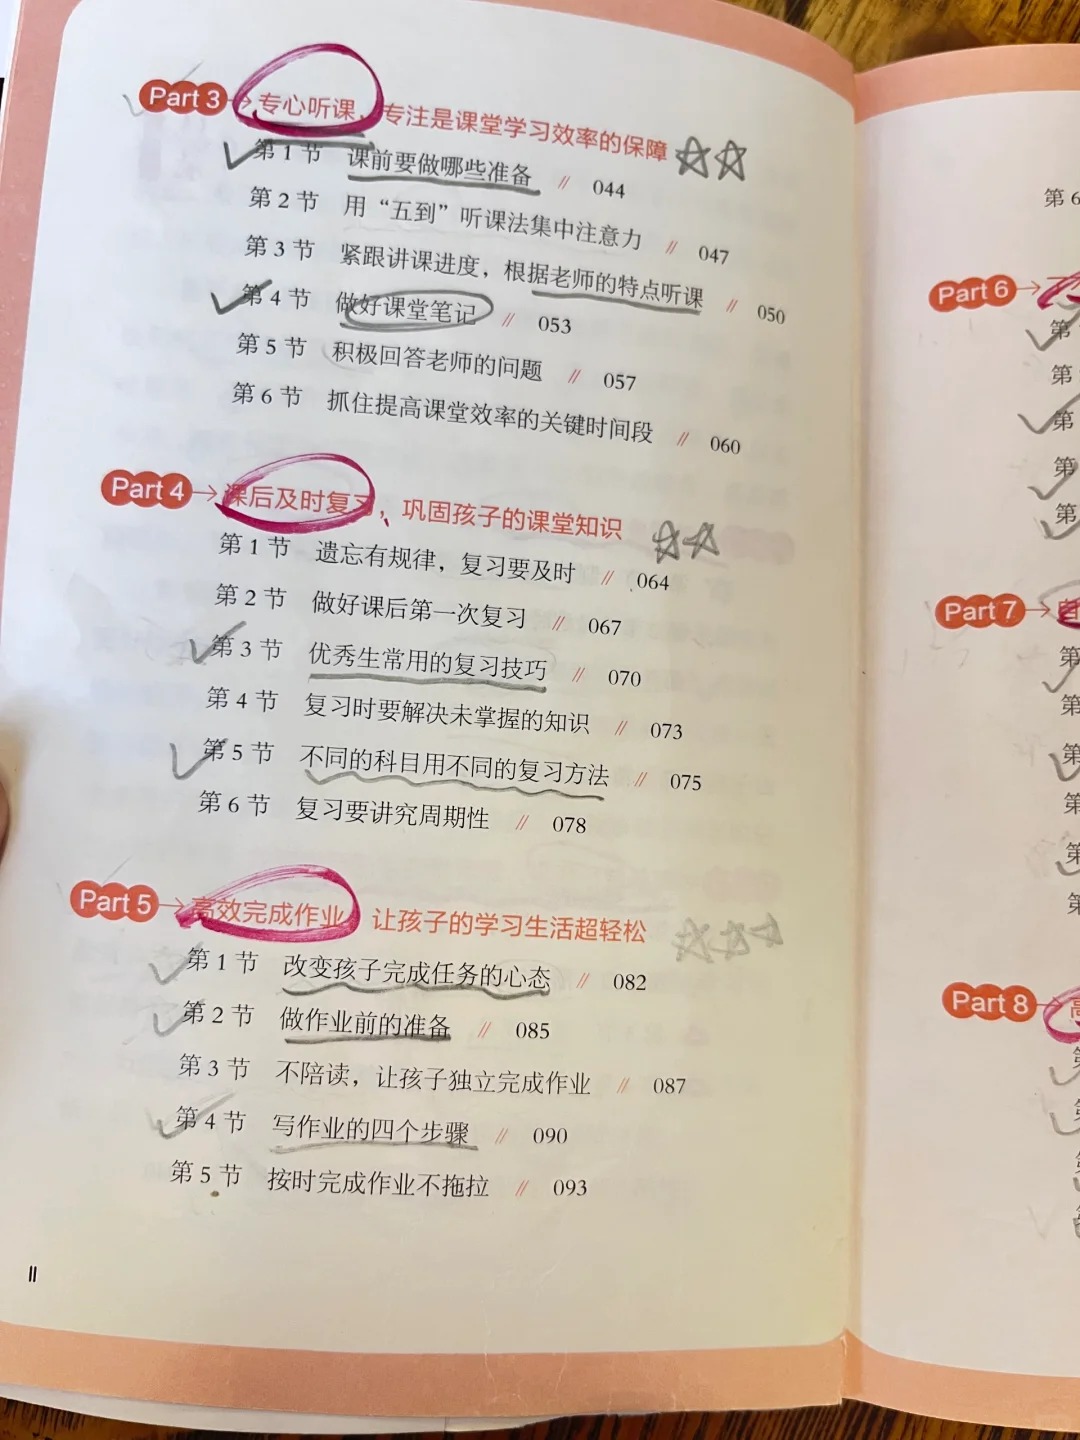 Part 3 → 专心听课，专注是课堂学习效率的保障
第 1 节 课前要做哪些准备 // 044
第 2 节 用“五到”听课法集中注意力 // 047
第 3 节 紧跟讲课进度，根据老师的特点听课 // 050
第 4 节 做好课堂笔记 // 053
第 5 节 积极回答老师的问题 // 057
第 6 节 抓住提高课堂效率的关键时间段 // 060
Part 4 → 课后及时复习，巩固孩子的课堂知识
第 1 节 遗忘有规律，复习要及时 // 064
第 2 节 做好课后第一次复习 // 067
第 3 节 优秀生常用的复习技巧 // 070
第 4 节 复习时要解决未掌握的知识 // 073
第 5 节 不同的科目用不同的复习方法 // 075
第 6 节 复习要讲究周期性 // 078
Part 5 → 高效完成作业，让孩子的学习生活超轻松
第 1 节 改变孩子完成任务的心态 // 082
第 2 节 做作业前的准备 // 085
第 3 节 不陪读，让孩子独立完成作业 // 087
第 4 节 写作业的四个步骤 // 090
第 5 节 按时完成作业不拖拉 // 093
II
第 6
Part 6 →
第
第
第
第
第
Part 7 →
第
第
第
第
第
第
Part 8 →